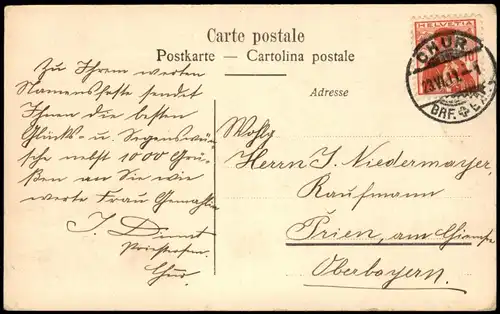 Carte postale
Postkarte — Cartolina postale
Adresse
HELVETIA
10
CHUR
23.VI.11.
BRF.
Zu Ihrem werten
Namensfeste sendet
Ihnen die besten
Glücks- u. Segenswün-
sche nebst 1000 Grü-
ßen an Sie wie
werte Frau Gemahlin
J.
Chur.
Wohlg
Herrn J. Niedermayer,
Kaufmann
Prien, am Chiemsee
Oberbayern.